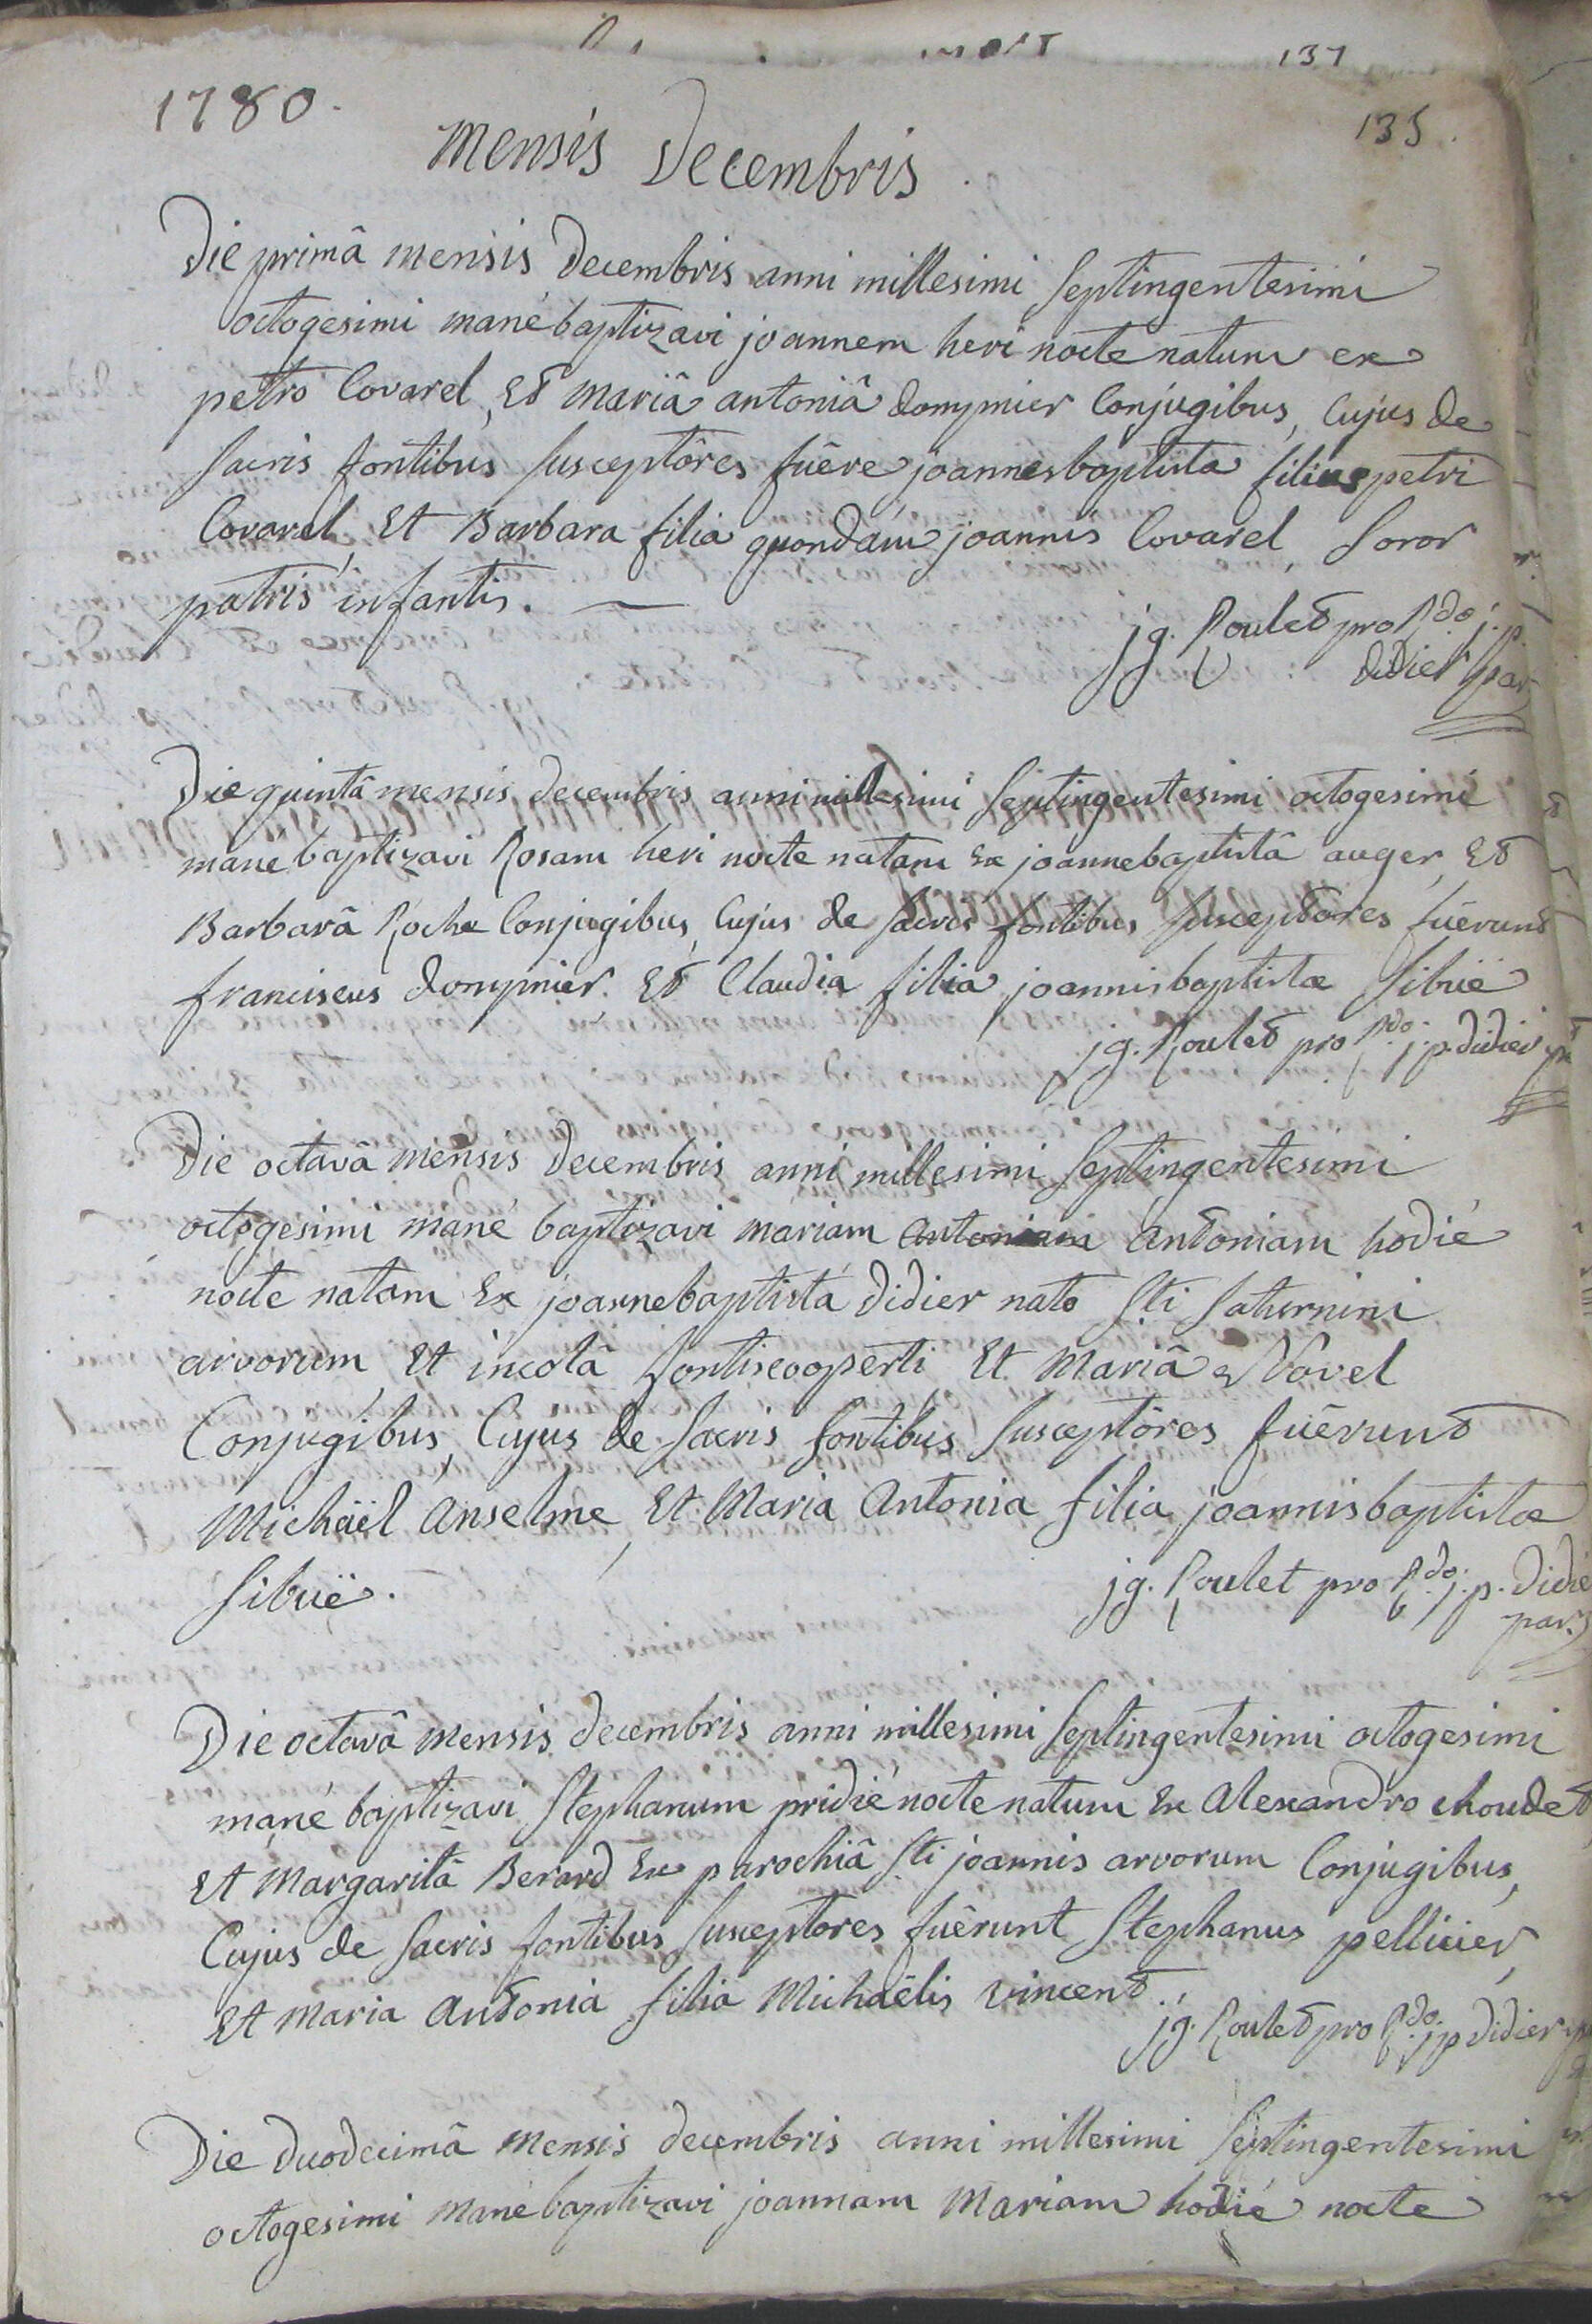 mort 137
1780. 135.
Mensis Decembris.
Die primâ mensis Decembris anni millesimi septingentesimi
octogesimi mané baptizavi joannem heri nocte natum ex
petro Covarel, et mariâ antoniâ dompnier Conjugibus, Cujus de
sacris fontibus susceptôres fuêre joannesbaptista filius petri
Covarel, Et Barbara filia quondám joannis Covarel, soror
patris infantis. —
jg. Roulet pro Rdo. j. p.
didier par
Die quintâ mensis decembris anni millesimi septingentesimi octogesimi
mane baptizavi Rosam heri nocte natam ex joannebaptistâ auger, Et
Barbarâ Roche Conjugibus, Cujus de sacris fontibus susceptores fuêrunt
franciscus dompnier Et Claudia filia joannisbaptistæ sibuë
jg. Roulet pro Rdo. j. p. didier
Die octavâ mensis Decembris anni millesimi septingentesimi
octogesimi mané baptizavi mariam antoniam antoniam hodié
nocte natam Ex joannebaptistâ didier nato sti saturnini
arvorum Et incolâ fontiscooperti Et Mariâ Novel
Conjugibus, Cujus de sacris fontibus susceptôres fuêrunt
Michäel Anselme, Et Maria Antonia filia joannisbaptistæ
sibuë. jg. Roulet pro Rdo. j. p. Didie
par.
Die octavâ mensis decembris anni millesimi septingentesimi octogesimi
mané baptizavi Stephanum pridié nocte natum Ex Alexandro choudet
Et Margaritâ Berard Ex parochiâ sti joannis arvorum Conjugibus,
Cujus de sacris fontibus susceptores fuêrunt Stephanus pellicier,
Et Maria Antonia filia Michaëlis vincent.
jg. Roulet pro Rdo. jp didier
Die duodecimâ mensis decembris anni millesimi septingentesimi
octogesimi mané baptizavi joannam Mariam hodié nocte